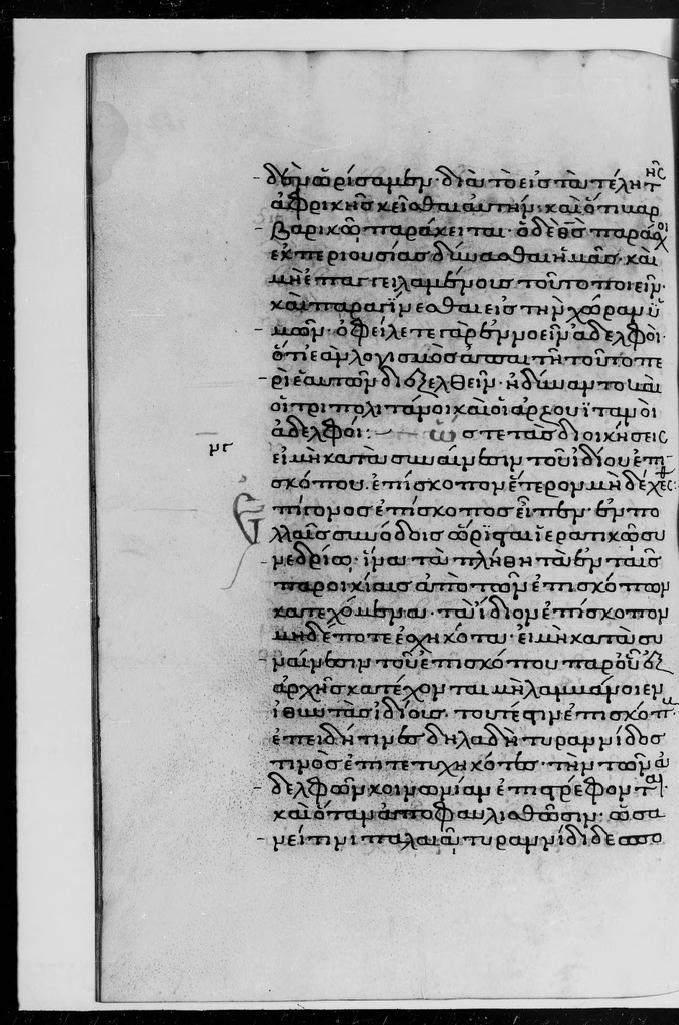 δὲν ὡρίσαμεν· διὰ τὸ εἰς τὰ τέλη τῆς
ἀφρικῆς κεῖσθαι αὐτήν· καὶ ὅτι βαρ
βαρικῶ παράκειται· ὁ δὲ θς παράσχοι
ἐκ περιουσίας δύνασθαι ἡμᾶς· καὶ
μὴ ἐπαγγειλαμένους τοῦτο ποιεῖν·
καὶ παραγΐνεσθαι εἰς τὴν χώραν ὑ
μῶν· ὀφείλετε γὰρ ἐννοεῖν ἀδελφοὶ·
ὅτι ἐὰν λογισμὸς
ρὶ ἑαυτῶν διεξελθεῖν· ἠδύναντο καὶ
οἱ τριπολιτάνοι καὶ οἱ ἀρζουϊτανοὶ
ἀδελφοί: ὥστε τὰς διοικήσεις
νγ
εἰ μὴ κατὰ συναίνεσιν τοῦ ἰδίου ἐπι
σκόπου. ἐπίσκοπον ἕτερον μὴ δέχεσθ:
Ἐπίγονος ἐπίσκοπος εἶπεν· ἐν πο
λλαῖς συνόδοις ὥρισται ἱερατικῶ συ
νεδρίω· ἵνα τὰ πλήθη τὰ ἐν ταῖς
παροικίαις ἀπὸ τῶν ἐπισκόπων
κατεχόμενα· τὰ ἴδιον ἐπίσκοπον
μηδέποτε ἐσχηκότα· εἰ μὴ κατὰ συ
ναίνεσιν τοῦ ἐπισκόπου παρ οὗ ἐξ
ἀρχῆς κατέχονται μὴ λαμμάνοιεν
ἰθύντας ἰδίους· τουτέστιν ἐπισκόπους
ἐπειδή τινες δηλαδὴ τυραννίδος
τινὸς ἐπιτετυχηκότες· τὴν τῶν ἀ
δελφῶν κοινωνίαν ἐπιστρέφονται·
καὶ ὅταν ἀποφαυλισθῶσιν· ὡσα
νεί τινι παλαιᾶ τυραννίδι δεσπο